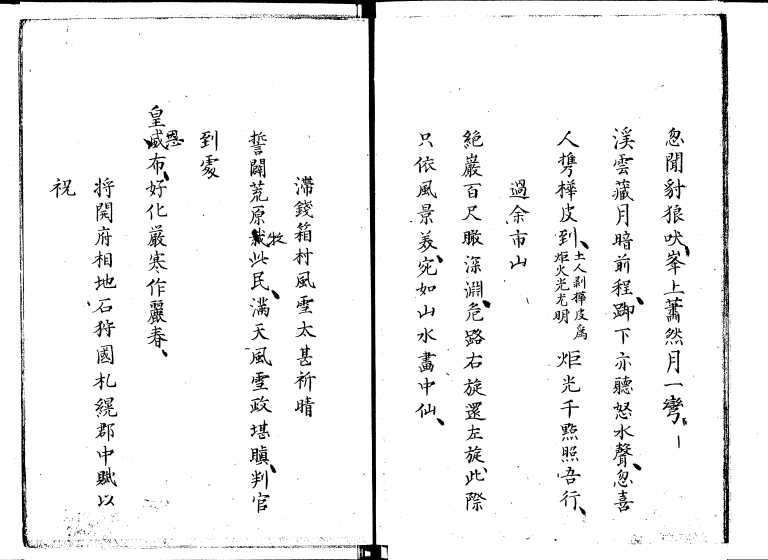 忽聞豺狼吠峯上蕭然月一彎
渓雲蔵月暗前程踟下亦聴怒水聲忽喜
人携樺皮到土人剥樺皮為炬火光尤明炬光千點照吾行
過余市山
絶巌百尺瞰深淵危路右旋還左旋此際
只依風景美宛如山水畵中仙
滞錢箱村風雪太甚祈晴
誓闢荒原牧此民満天風雪政堪瞋判官
到處
皇恩布好化厳寒作麗春
将開府相地石狩國札縨郡中賦以
祝